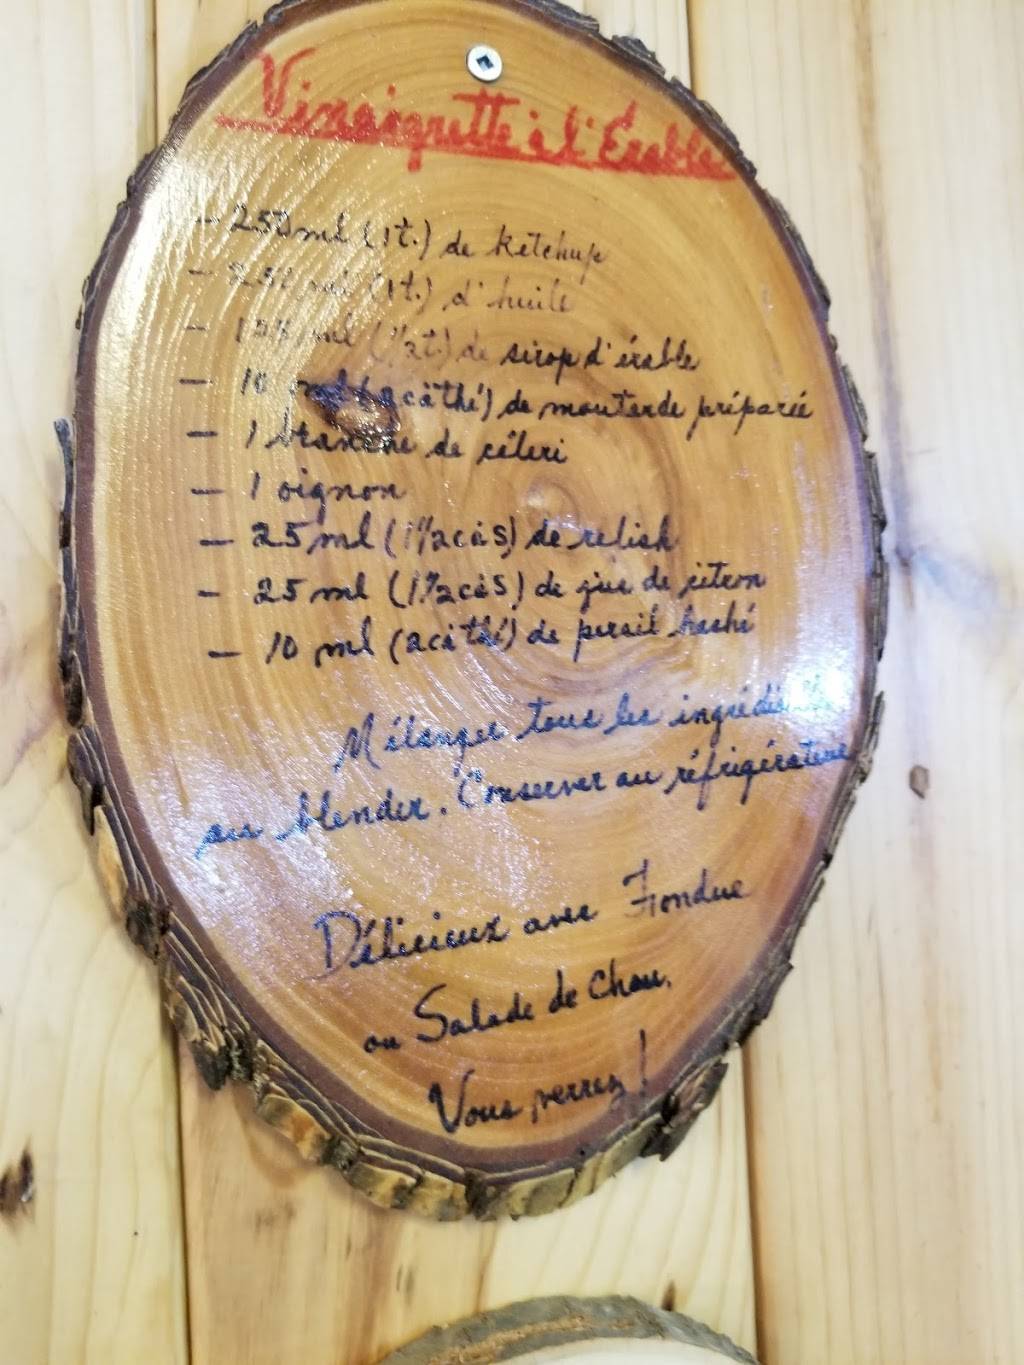 Vinaigrette à l'Érable
- 250 ml (1 t.) de ketchup
- 250 ml (1 t.) d'huile
- 125 ml (1/2 t.) de sirop d'érable
- 10 ml (2 c à thé) de moutarde préparée
- 1 branche de céleri
- 1 oignon
- 25 ml (1 1/2 c à s) de relish
- 25 ml (1 1/2 c à s) de jus de citron
- 10 ml (2 c à thé) de persil haché
Mélanger tous les ingrédients
au blender. Conserver au réfrigérateur
Délicieux avec Fondue
ou Salade de chou.
Vous verrez!